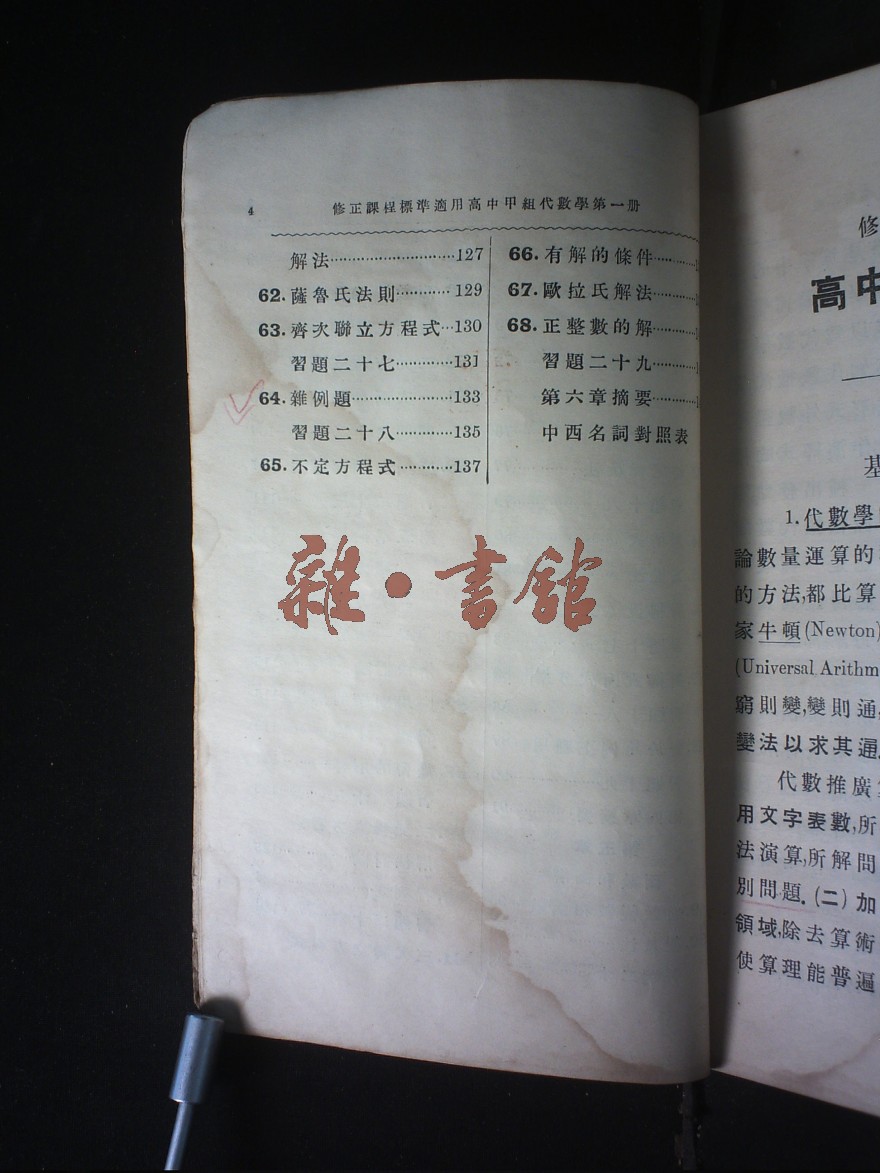 4
修正課程標準適用高中甲組代數學第一册
解法…………………………127
62.薩魯氏法則…………129
63.齊次聯立方程式…130
習題二十七……………131
64.雜例題…………………133
習題二十八……………135
65.不定方程式…………137
66.有解的條件…………
67.歐拉氏解法…………
68.正整數的解…………
習題二十九…………
第六章摘要…………
中西名詞對照表
雜·書館
修
高中
基
1.代數學
論數量運算的
的方法,都比算
家牛頓(Newton)
(Universal Arithm
窮則變,變則通,
變法以求其通.
代數推廣
用文字表數,所
法演算,所解問
別問題.(二)加
領域,除去算術
使算理能普遍